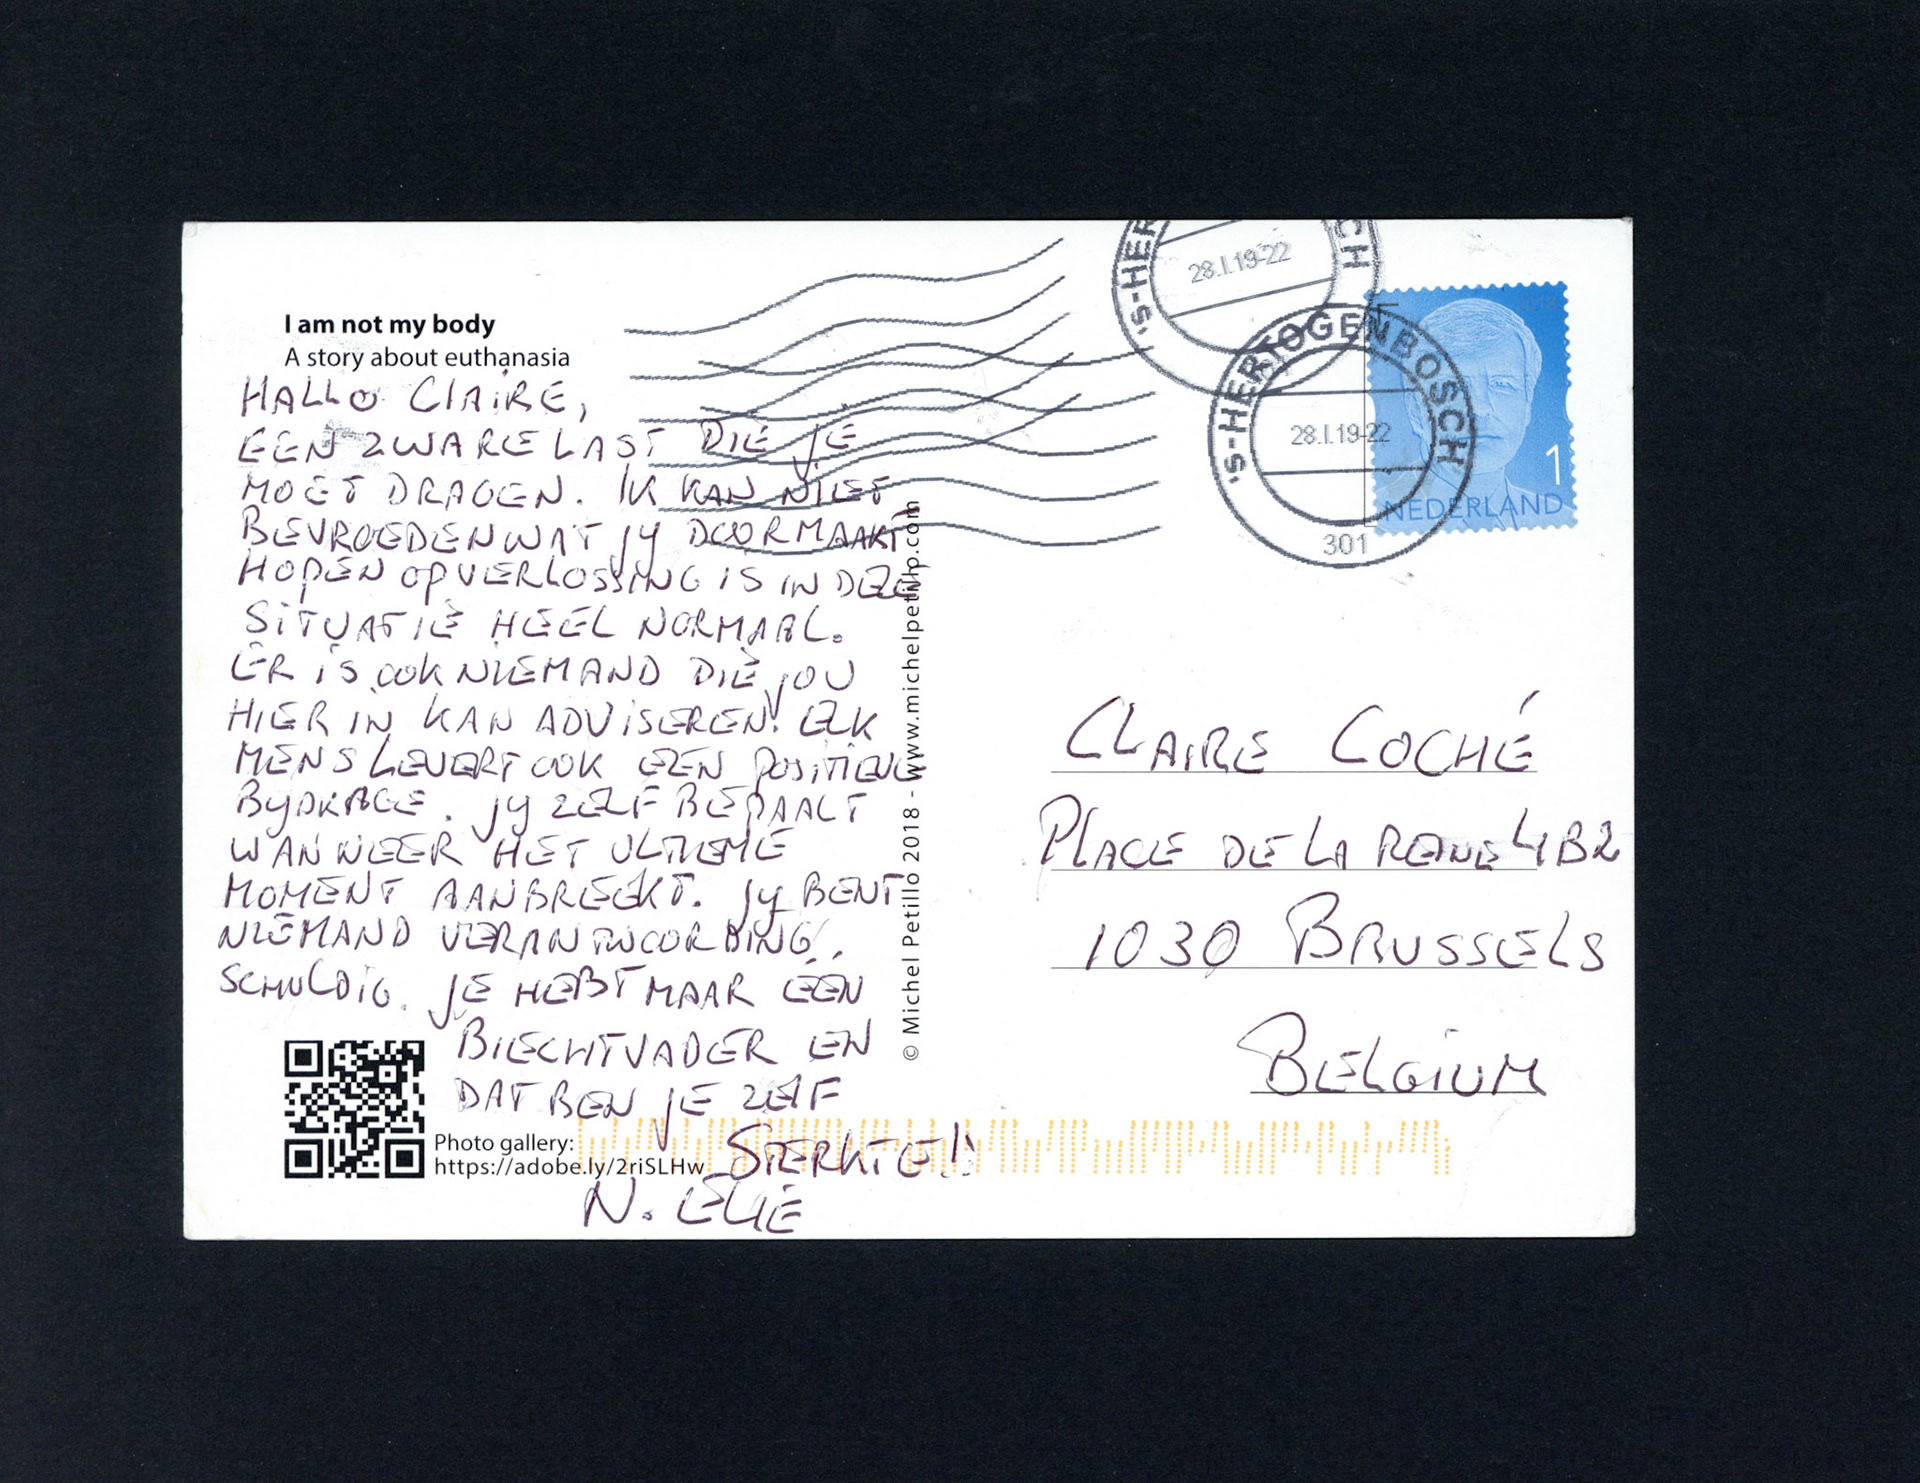 I am not my body
A story about euthanasia
HALLO CLAIRE,
EEN ZWARE LAST DIE JE
MOET DRAGEN. IK KAN NIET
BEVROEDEN WAT JY DOORMAAKT
HOPEN OP VERLOSSING IS IN DEZE
SITUATIE HEEL NORMAAL.
ER IS OOK NIEMAND DIE JOU
HIER IN KAN ADVISEREN. ELK
MENS LEVERT OOK EEN POSITIEVE
BYDRAGE. JY ZELF BEPAALT
WANNEER HET ULTIEME
MOMENT AANBREEKT. JY BENT
NIEMAND VERANTWOORDING
SCHULDIG. JE HEBT MAAR ÉÉN
BIECHTVADER EN
DAT BEN JE ZELF
STERKTE!!
N. ELIE
Photo gallery:
https://adobe.ly/2riSLHw
© Michel Petillo 2018 - www.michelpetillo.com
's-HER CH
28.I.19-22
's-HERTOGENBOSCH
28.I.19-22
301
1
NEDERLAND
CLAIRE COCHÉ
PLACE DE LA REINE 4 B2
1030 BRUSSELS
BELGIUM